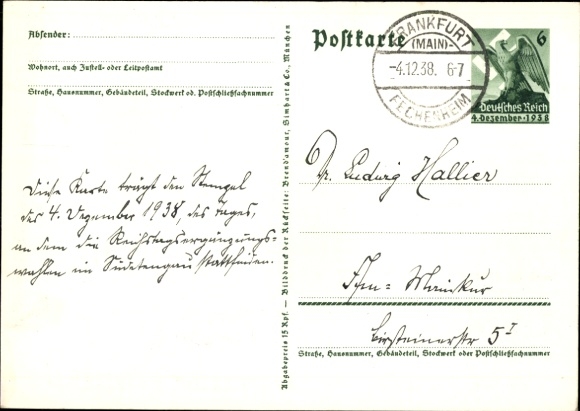 Absender:
Wohnort, auch Zustell- oder Leitpostamt
Straße, Hausnummer, Gebäudeteil, Stockwerk od. Postschließfachnummer
Diese Karte trägt den Stempel
des 4. Dezember 1938, des Tages,
an dem die Reichstagsergänzungs-
wahlen im Sudetengau stattfinden.
Abgabepreis 15 Rpf. — Bilddruck der Rückseite: Brend'amour, Simhart & Co., München
Postkarte
FRANKFURT
(MAIN)-
-4.12.38. 6-7
FECHENHEIM
6
Deutsches Reich
4. Dezember · 1938
Dr. Ludwig Hallier
Ffm - Mainkur
Birsteinerstr 5 I
Straße, Hausnummer, Gebäudeteil, Stockwerk oder Postschließfachnummer